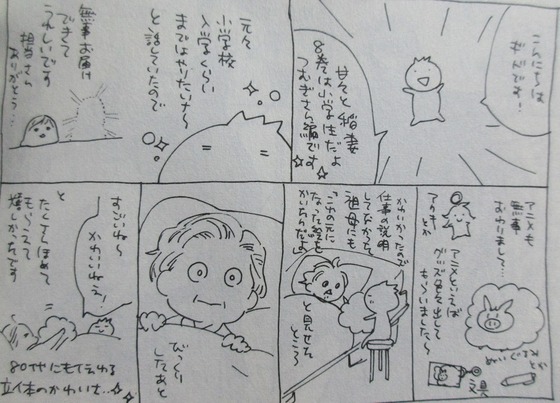 こんにちは
ガムです…
甘々と稲妻
8巻は小学生だよ
つむぎさん編です
元々
小学校
入学くらい
まではやりたいナ〜
と話していたので
無事お届け
できて
うれしいです
担当さん
ありがとう…
アニメも
無事
おわりまして…
アクキー
とか
アニメといえば
グッズなどを出して
もらいました〜
ぬいぐるみ
とか
文具
かわいかったので
仕事の説明
してなかった
祖母にも
「これの元に
なった絵を
かいたんだよ」
と見せた
ところ〜
びっくり
したあと
すごいね〜
かわいいねぇ!
と
たくさんほめて
もらえて
嬉しかったです
80才にも伝わる
立体のかわいさ…